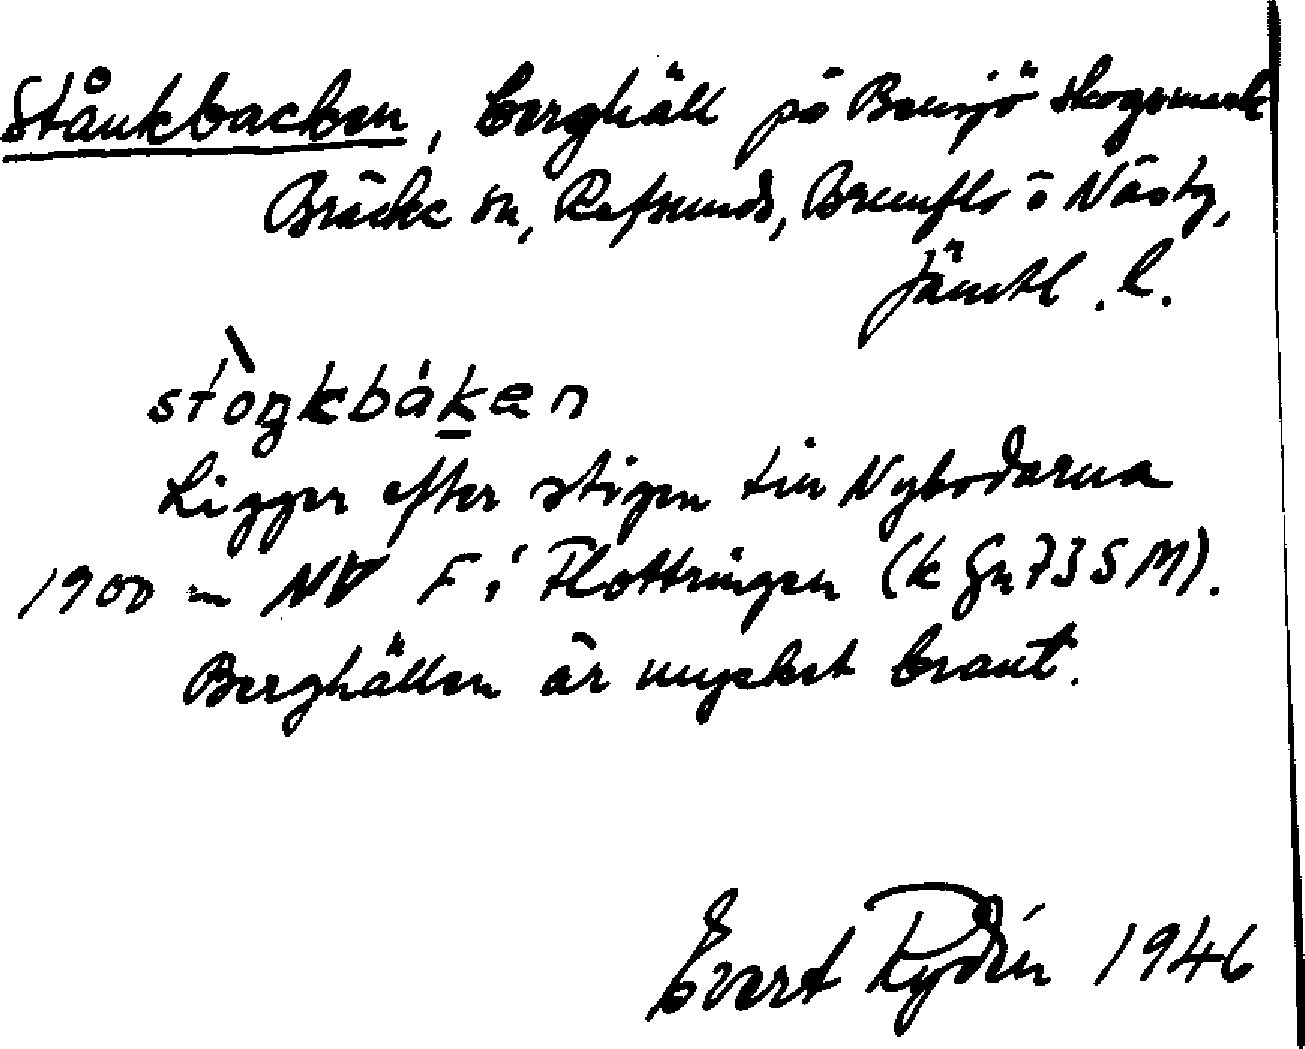 Stånkbacken, berghäll på Bensjö skogsmark
Bräcke sn, Refsunds, Brunflo o Näs tg,
Jämtl. l.
stòŋkbáken
Ligger efter stigen till Nybodarna
1900 m NV F i Flottringen (k Gn 73 S M).
Berghällen är mycket brant.
Evert Rydén 1946